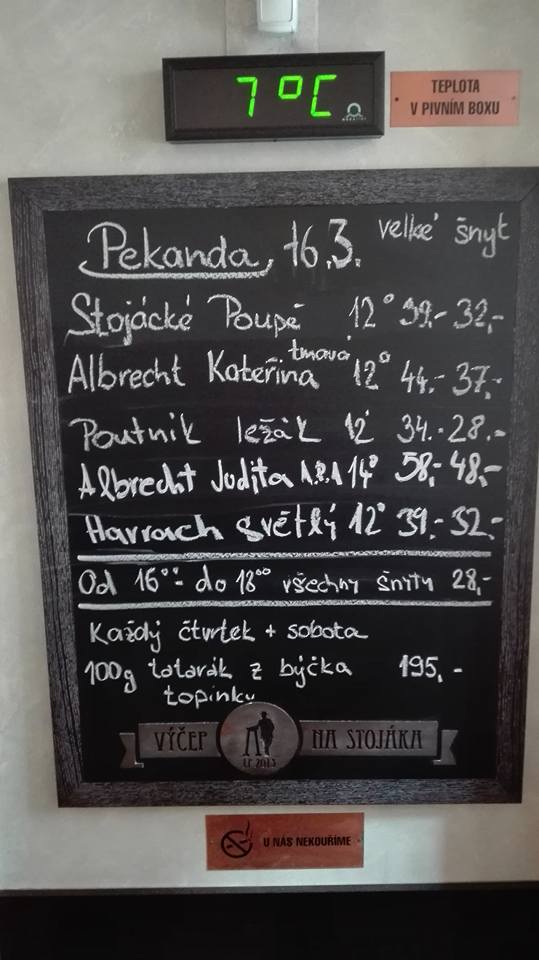 7°C
TEPLOTA
V PIVNÍM BOXU
Pekanda, 16.3. velké šnyt
Stojácké Poupě 12° 39,- 32,-
Albrecht Kateřina tmavá 12° 44,- 37,-
Poutník ležák 12° 34.- 28.-
Albrecht Judita A.P.A 14° 58,- 48,-
Harrach světlý 12° 39,- 32,-
Od 16⁰⁰ do 18⁰⁰ všechny šnity 28,-
Každý čtvrtek + sobota
100g tatarák z býčka 195,-
topinky
VÝČEP NA STOJÁKA
LP. 2013
U NÁS NEKOUŘÍME